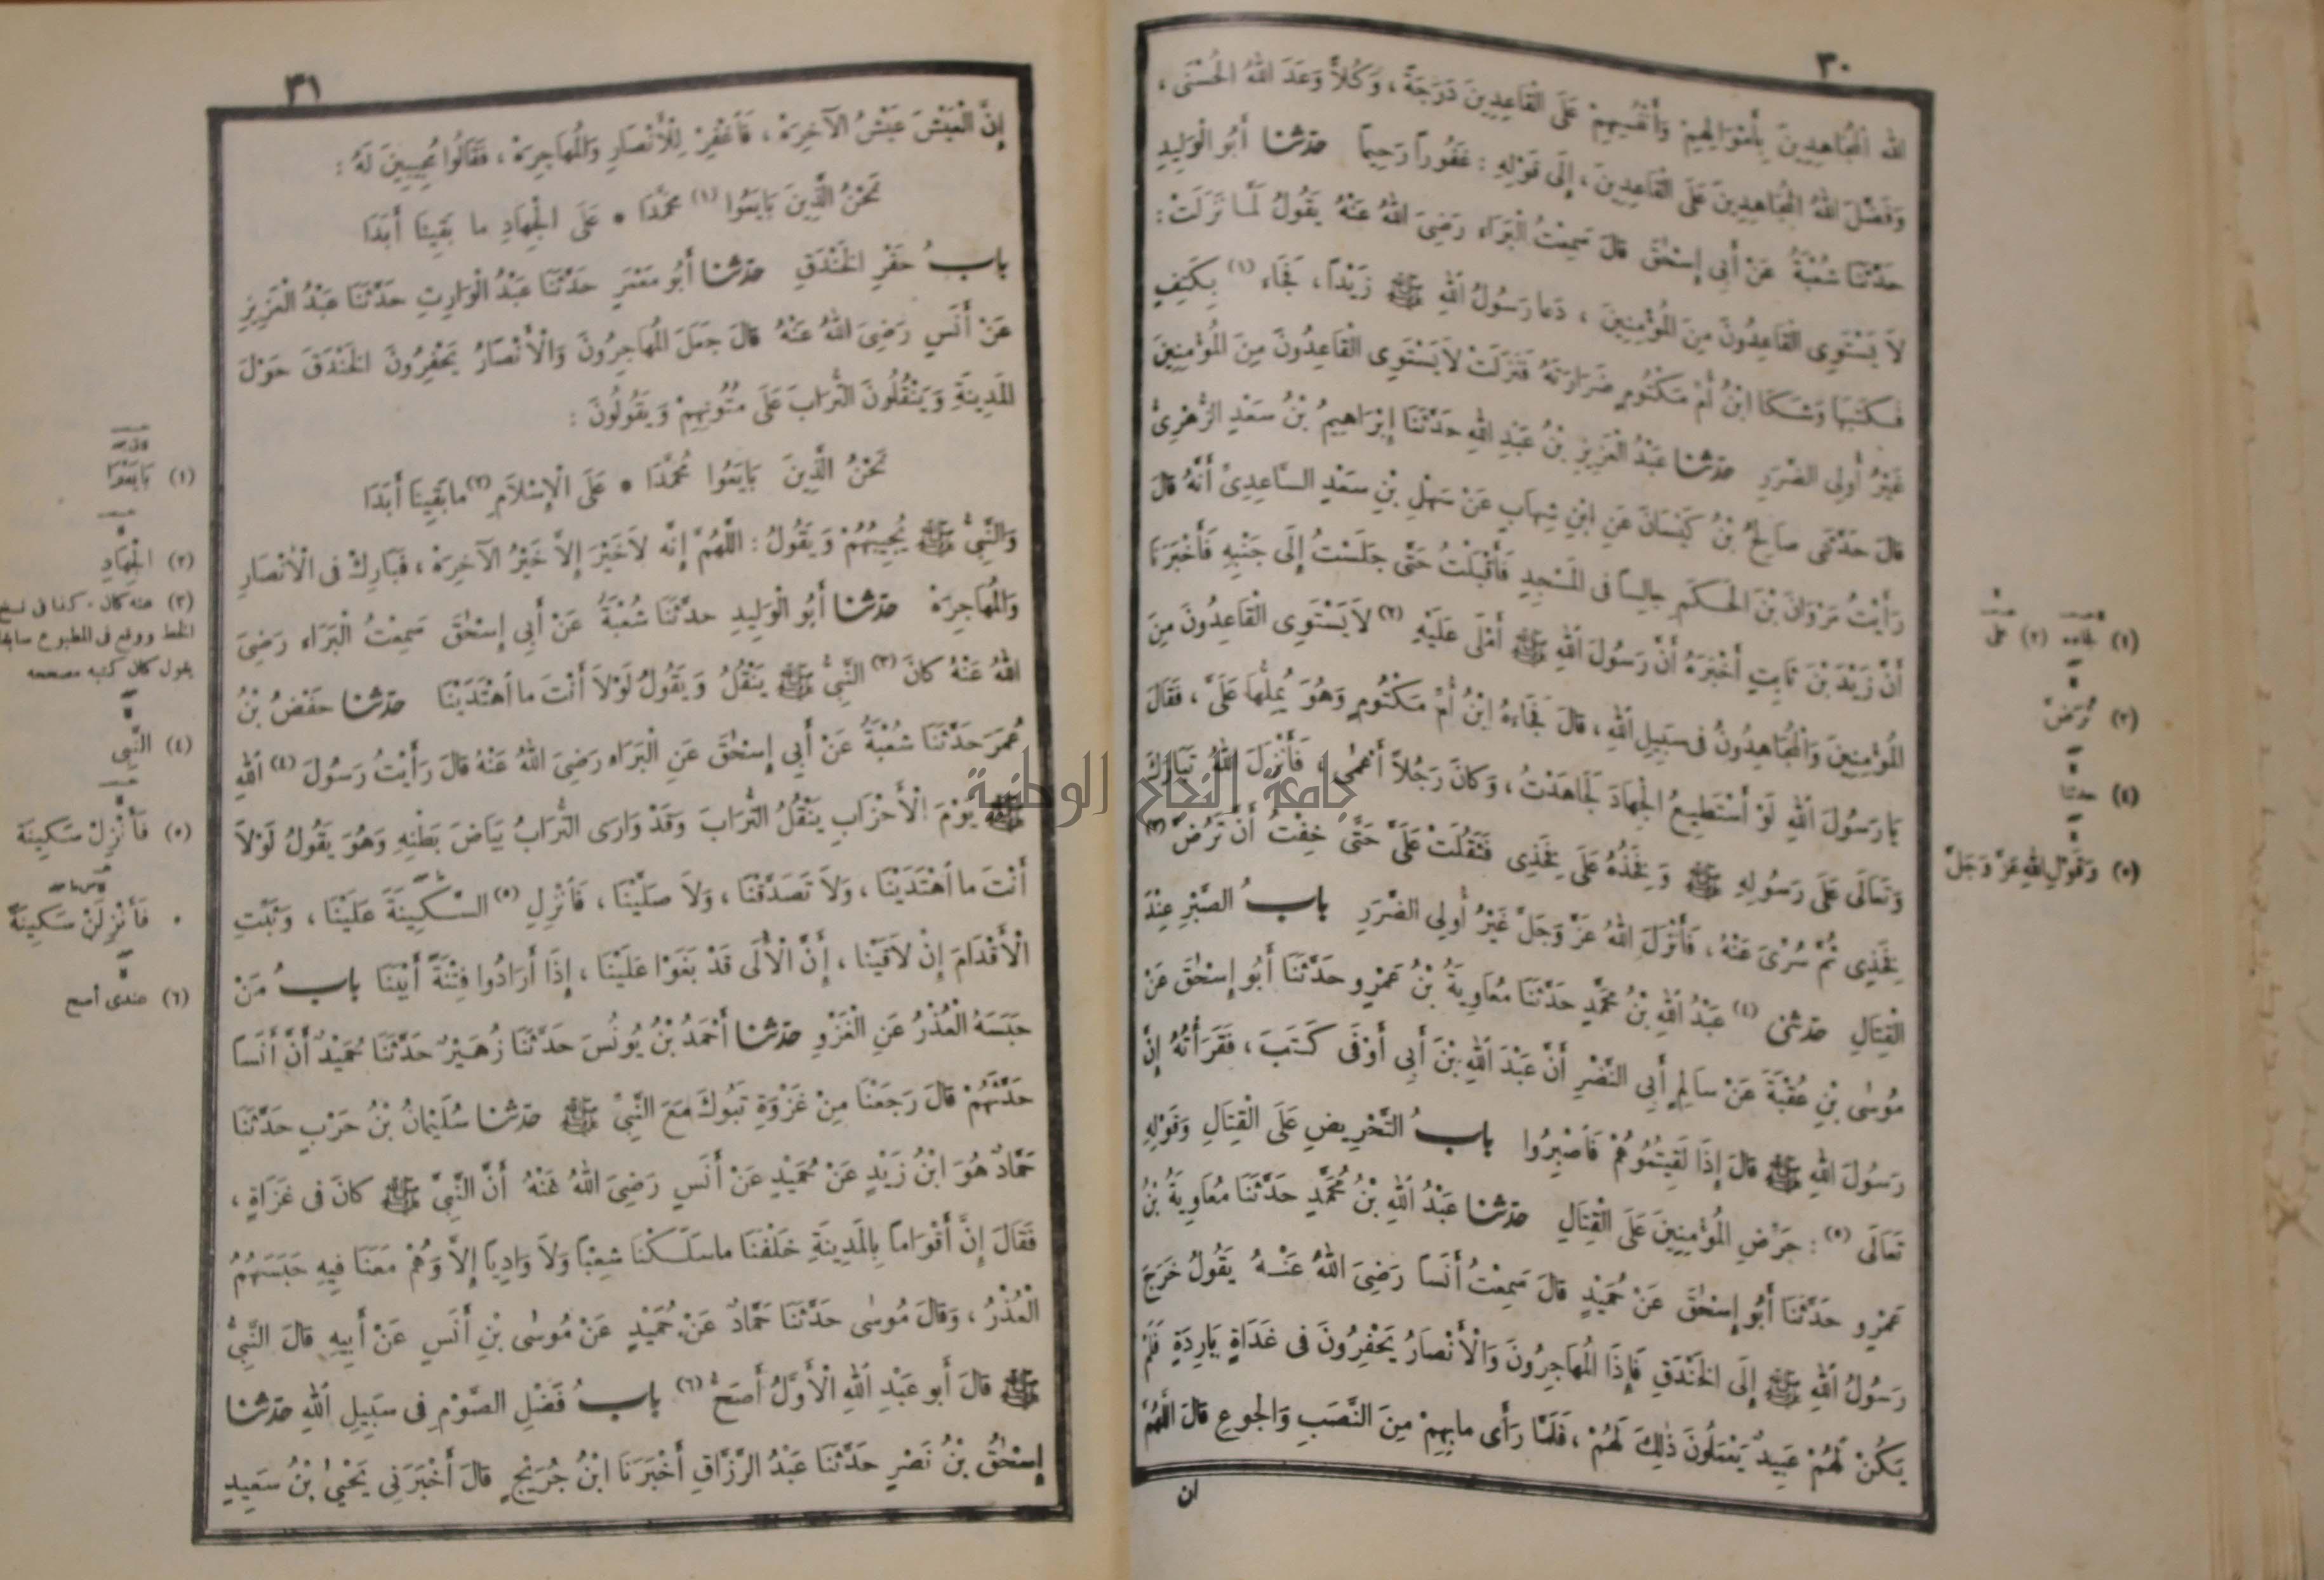 ٣٠
اللهُ الْمُجَاهِدِينَ بِأَمْوَالِهِمْ وَأَنْفُسِهِمْ عَلَى الْقَاعِدِينَ دَرَجَةً ، وَكُلاًّ وَعَدَ اللهُ الْحُسْنَى ،
وَفَضَّلَ اللهُ الْمُجَاهِدِينَ عَلَى الْقَاعِدِينَ ، إِلَى قَوْلِهِ : غَفُوراً رَحِيماً حَدَّثَنَا أَبُو الْوَلِيدِ
حَدَّثَنَا شُعْبَةُ عَنْ أَبِي إِسْحٰقَ قَالَ سَمِعْتُ الْبَرَاءَ رَضِيَ اللهُ عَنْهُ يَقُولُ لَمَّا نَزَلَتْ :
لاَ يَسْتَوِى الْقَاعِدُونَ مِنَ الْمُؤْمِنِينَ ، دَعَا رَسُولُ اللهِ ﷺ زَيْداً ، فَجَاءَ (١) بِكَتِفٍ
فَكَتَبَهَا وَشَكَا ابْنُ أُمِّ مَكْتُومٍ ضَرَارَتَهُ فَنَزَلَتْ لاَ يَسْتَوِى الْقَاعِدُونَ مِنَ الْمُؤْمِنِينَ
غَيْرُ أُولِى الضَّرَرِ حَدَّثَنَا عَبْدُ الْعَزِيزِ بْنُ عَبْدِ اللهِ حَدَّثَنَا إِبْرَاهِيمُ بْنُ سَعْدٍ الزُّهْرِىُّ
قَالَ حَدَّثَنِى صَالِحُ بْنُ كَيْسَانَ عَنِ ابْنِ شِهَابٍ عَنْ سَهْلِ بْنِ سَعْدٍ السَّاعِدِىِّ أَنَّهُ قَالَ
رَأَيْتُ مَرْوَانَ بْنَ الْحَكَمِ جَالِساً فِى الْمَسْجِدِ فَأَقْبَلْتُ حَتَّى جَلَسْتُ إِلَى جَنْبِهِ فَأَخْبَرَنَا
أَنَّ زَيْدَ بْنَ ثَابِتٍ أَخْبَرَهُ أَنَّ رَسُولَ اللهِ ﷺ أَمْلَى عَلَيْهِ (٢) لاَ يَسْتَوِى الْقَاعِدُونَ مِنَ
الْمُؤْمِنِينَ وَالْمُجَاهِدُونَ فِى سَبِيلِ اللهِ ، قَالَ فَجَاءَهُ ابْنُ أُمِّ مَكْتُومٍ وَهُوَ يُمِلُّهَا عَلَىَّ ، فَقَالَ
يَا رَسُولَ اللهِ لَوْ أَسْتَطِيعُ الْجِهَادَ لَجَاهَدْتُ ، وَكَانَ رَجُلاً أَعْمٰى ، فَأَنْزَلَ اللهُ تَبَارَكَ
وَتَعَالَى عَلَى رَسُولِهِ ﷺ وَفَخِذُهُ عَلَى فَخِذِى فَثَقُلَتْ عَلَىَّ حَتَّى خِفْتُ أَنْ تَرُضَّ (٣)
فَخِذِى ثُمَّ سُرِّىَ عَنْهُ ، فَأَنْزَلَ اللهُ عَزَّ وَجَلَّ غَيْرُ أُولِى الضَّرَرِ بابُ الصَّبْرِ عِنْدَ
الْقِتَالِ حَدَّثَنِى (٤) عَبْدُ اللهِ بْنُ مُحَمَّدٍ حَدَّثَنَا مُعَاوِيَةُ بْنُ عَمْرٍو حَدَّثَنَا أَبُو إِسْحٰقَ عَنْ
مُوسٰى بْنِ عُقْبَةَ عَنْ سَالِمٍ أَبِي النَّضْرِ أَنَّ عَبْدَ اللهِ بْنَ أَبِي أَوْفَى كَتَبَ ، فَقَرَأْتُهُ إِنَّ
رَسُولَ اللهِ ﷺ قَالَ إِذَا لَقِيتُمُوهُمْ فَاصْبِرُوا بابُ التَّحْرِيضِ عَلَى الْقِتَالِ وَقَوْلِهِ
تَعَالَى (٥) : حَرِّضِ الْمُؤْمِنِينَ عَلَى الْقِتَالِ حَدَّثَنَا عَبْدُ اللهِ بْنُ مُحَمَّدٍ حَدَّثَنَا مُعَاوِيَةُ بْنُ
عَمْرٍو حَدَّثَنَا أَبُو إِسْحٰقَ عَنْ حُمَيْدٍ قَالَ سَمِعْتُ أَنَساً رَضِيَ اللهُ عَنْهُ يَقُولُ خَرَجَ
رَسُولُ اللهِ ﷺ إِلَى الْخَنْدَقِ فَإِذَا الْمُهَاجِرُونَ وَالْأَنْصَارُ يَحْفِرُونَ فِى غَدَاةٍ بَارِدَةٍ فَلَمْ
يَكُنْ لَهُمْ عَبِيدٌ يَعْمَلُونَ ذٰلِكَ لَهُمْ ، فَلَمَّا رَأَى مَا بِهِمْ مِنَ النَّصَبِ وَالْجُوعِ قَالَ اللَّهُمَّ
ان
(١) فجاءه (٢) على
(٣) تُرَضَّ
(٤) حدثنا
(٥) وَقَوْلِ اللهِ عَزَّ وَجَلَّ
٣١
إِنَّ الْعَيْشَ عَيْشُ الآخِرَهْ ، فَاغْفِرْ لِلْأَنْصَارِ وَالْمُهَاجِرَهْ ، فَقَالُوا مُجِيبِينَ لَهُ :
نَحْنُ الَّذِينَ بَايَعُوا (١) مُحَمَّدَا * عَلَى الْجِهَادِ ما بَقِينَا أَبَدَا
بابُ حَفْرِ الْخَنْدَقِ حَدَّثَنَا أَبُو مَعْمَرٍ حَدَّثَنَا عَبْدُ الْوَارِثِ حَدَّثَنَا عَبْدُ الْعَزِيزِ
عَنْ أَنَسٍ رَضِيَ اللهُ عَنْهُ قَالَ جَعَلَ الْمُهَاجِرُونَ وَالْأَنْصَارُ يَحْفِرُونَ الْخَنْدَقَ حَوْلَ
الْمَدِينَةِ وَيَنْقُلُونَ التُّرَابَ عَلَى مُتُونِهِمْ وَيَقُولُونَ :
نَحْنُ الَّذِينَ بَايَعُوا مُحَمَّدَا * عَلَى الْإِسْلاَمِ (٢) ما بَقِينَا أَبَدَا
وَالنَّبِيُّ ﷺ يُجِيبُهُمْ وَيَقُولُ : اللَّهُمَّ إِنَّه لاَ خَيْرَ إِلاَّ خَيْرُ الآخِرَهْ ، فَبَارِكْ فِى الْأَنْصَارِ
وَالْمُهَاجِرَهْ حَدَّثَنَا أَبُو الْوَلِيدِ حَدَّثَنَا شُعْبَةُ عَنْ أَبِي إِسْحٰقَ سَمِعْتُ الْبَرَاءَ رَضِيَ
اللهُ عَنْهُ كَانَ (٣) النَّبِيُّ ﷺ يَنْقُلُ وَيَقُولُ لَوْلاَ أَنْتَ ما اهْتَدَيْنَا حَدَّثَنَا حَفْصُ بْنُ
عُمَرَ حَدَّثَنَا شُعْبَةُ عَنْ أَبِي إِسْحٰقَ عَنِ الْبَرَاءِ رَضِيَ اللهُ عَنْهُ قَالَ رَأَيْتُ رَسُولَ (٤) اللهِ
ﷺ يَوْمَ الْأَحْزَابِ يَنْقُلُ التُّرَابَ وَقَدْ وَارَى التُّرَابُ بَيَاضَ بَطْنِهِ وَهُوَ يَقُولُ لَوْلاَ
أَنْتَ ما اهْتَدَيْنَا ، وَلاَ تَصَدَّقْنَا ، وَلاَ صَلَّيْنَا ، فَأَنْزِلِ (٥) السَّكِينَةَ عَلَيْنَا ، وَثَبِّتِ
الْأَقْدَامَ إِنْ لاَقَيْنَا ، إِنَّ الْأُلَى قَدْ بَغَوْا عَلَيْنَا ، إِذَا أَرَادُوا فِتْنَةً أَبَيْنَا بابُ مَنْ
حَبَسَهُ الْعُذْرُ عَنِ الْغَزْوِ حَدَّثَنَا أَحْمَدُ بْنُ يُونُسَ حَدَّثَنَا زُهَيْرٌ حَدَّثَنَا حُمَيْدٌ أَنَّ أَنَساً
حَدَّثَهُمْ قَالَ رَجَعْنَا مِنْ غَزْوَةِ تَبُوكَ مَعَ النَّبِيِّ ﷺ حَدَّثَنَا سُلَيْمَانُ بْنُ حَرْبٍ حَدَّثَنَا
حَمَّادٌ هُوَ ابْنُ زَيْدٍ عَنْ حُمَيْدٍ عَنْ أَنَسٍ رَضِيَ اللهُ عَنْهُ أَنَّ النَّبِيَّ ﷺ كَانَ فِى غَزَاةٍ ،
فَقَالَ إِنَّ أَقْوَاماً بِالْمَدِينَةِ خَلْفَنَا ما سَلَكْنَا شِعْباً وَلاَ وَادِياً إِلاَّ وَهُمْ مَعَنَا فِيهِ حَبَسَهُمُ
الْعُذْرُ ، وَقَالَ مُوسٰى حَدَّثَنَا حَمَّادٌ عَنْ حُمَيْدٍ عَنْ مُوسٰى بْنِ أَنَسٍ عَنْ أَبِيهِ قَالَ النَّبِيُّ
ﷺ قَالَ أَبو عَبْدِ اللهِ الْأَوَّلُ أَصَحُّ (٦) بابُ فَضْلِ الصَّوْمِ فِى سَبِيلِ اللهِ حَدَّثَنَا
إِسْحٰقُ بْنُ نَصْرٍ حَدَّثَنَا عَبْدُ الرَّزَّاقِ أَخْبَرَنَا ابْنُ جُرَيْجٍ قَالَ أَخْبَرَنِى يَحْيىٰ بْنُ سَعِيدٍ
(١) بَايَعْنَا
(٢) الْجِهَادِ
(٣) عنه كان . كذا فى نسخ
الخط ووقع فى المطبوع سابقا
يقول كان كتبه مصححه
(٤) النَّبِى
(٥) فَأَنْزِلْ سَكِينَةً
فَأَنْزِلَنْ سَكِينَةً
(٦) عندى أصح
جامعة النجاح الوطنية